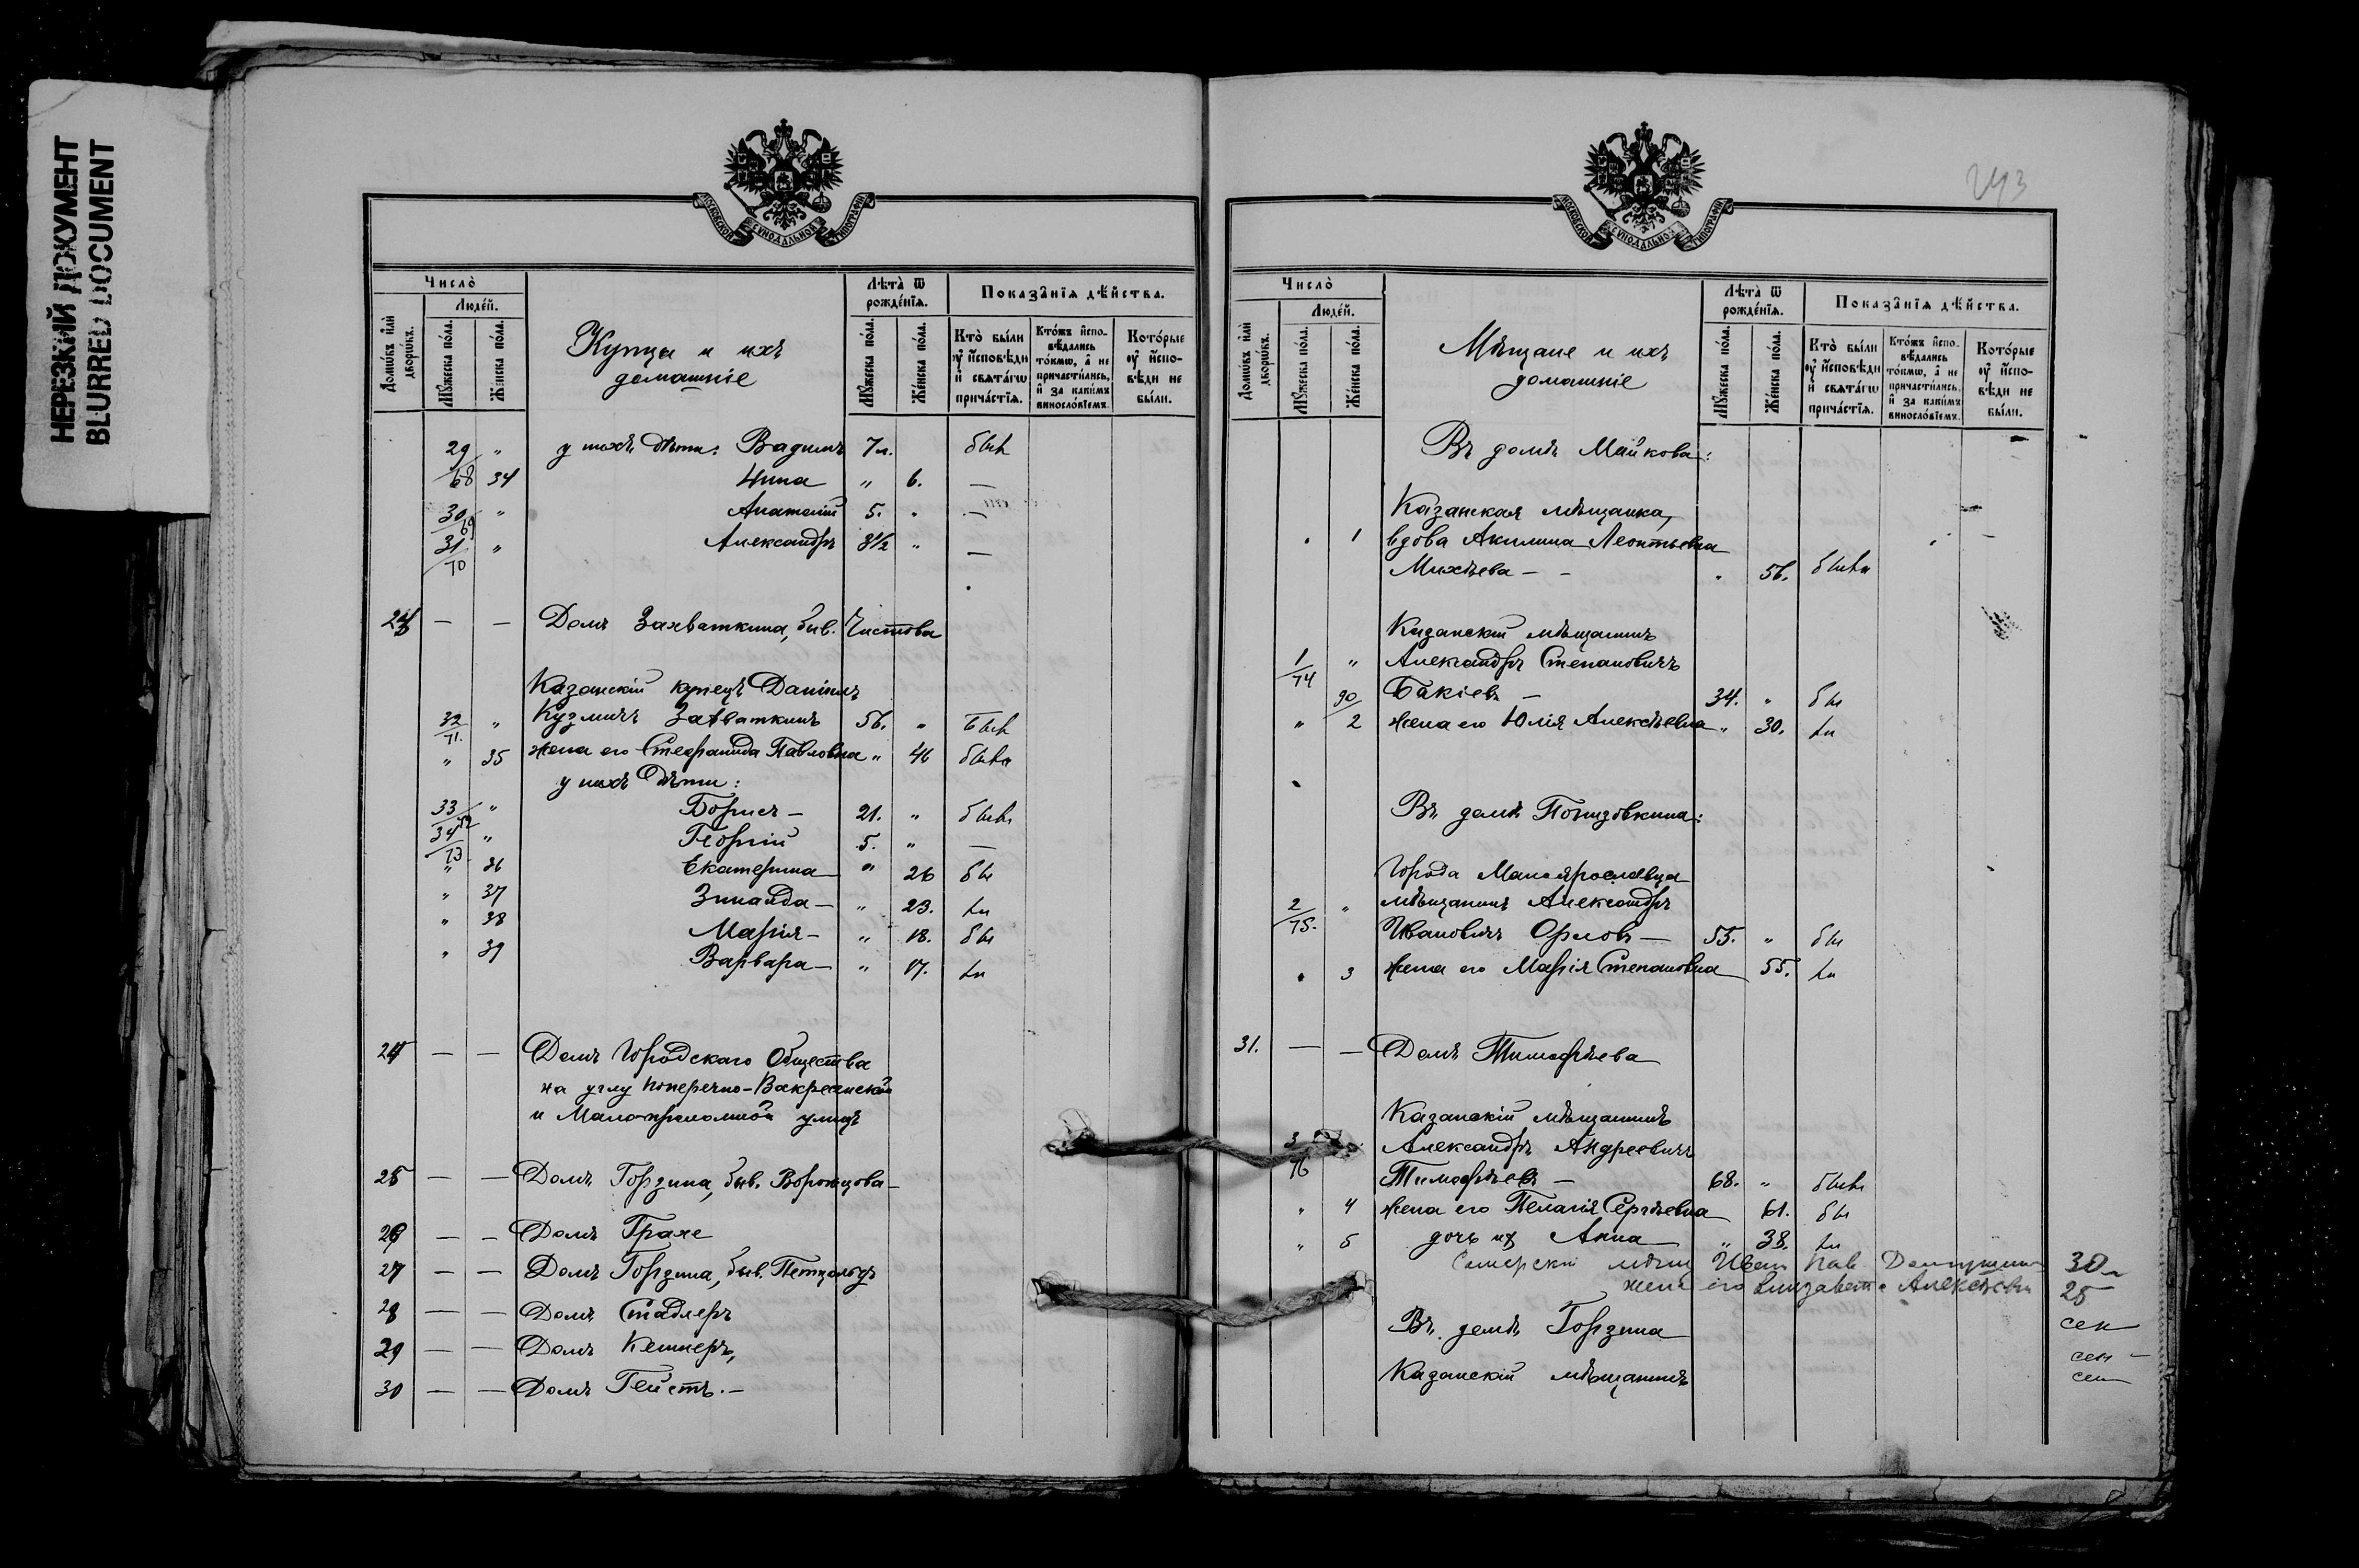 НЕРЕЗКИЙ ДОКУМЕНТ
BLURRED DOCUMENT
МОСКОВСКОЙ СѴНОДАЛЬНОЙ ТИПОГРАФІИ
Число̀
Люде́й.
Домѡ́въ и҆лѝ дворѡ́въ.
Мꙋ́жеска по́ла.
Же́нска по́ла.
Купцы и ихъ
домашніе
Лѣта̀ ѿ рожде́нїѧ.
Мꙋ́жеска по́ла.
Же́нска по́ла.
Показа̂нїѧ дѣ́йства.
Кто̀ бы́ли ᲂу҆ и҆сповѣ́ди и҆ свѧта́гѡ прича́стїѧ.
Кто́жъ и҆сповѣ́дались то́кмѡ, а҆ не причасти́лись, и҆ за каки́мъ винослові́емъ.
Кото́рые ᲂу҆ и҆сповѣ́ди не бы́ли.
29 " у нихъ дѣти: Вадимъ 7 л. быв
68 34 Нина " 6. —
30 " Анатолій 5. " —
69
31 " Александръ 3½ " —
70
23 — — Домъ Захваткина, быв. Чистова
Казанскій купецъ Даніилъ
32 " Кузмичъ Захваткинъ 56. " быв
71.
" 35 жена его Стефанида Павловна " 46 была
у нихъ дѣти:
33 " Борисъ — 21. " былъ
72
34 " Георгій 5. " —
73
" 36 Екатерина — " 26 бы
" 37 Зинаида — " 23. ли
" 38 Марія — " 18. бы
" 39 Варвара — " 17. ли
24 — — Домъ Городского Общества
на углу Поперечно-Воскресенской
и Мало-проломной улицъ
25 — — Домъ Горзина, быв. Воронцова —
26 — — Домъ Грахе
27 — — Домъ Горзина, быв. Петцольдъ
28 — — Домъ Стадлеръ
29 — — Домъ Келлеръ,
30 — — Домъ Гейстъ. —
243
МОСКОВСКОЙ СѴНОДАЛЬНОЙ ТИПОГРАФІИ
Число̀
Люде́й.
Домѡ́въ и҆лѝ дворѡ́въ.
Мꙋ́жеска по́ла.
Же́нска по́ла.
Мѣщане и ихъ
домашніе
Лѣта̀ ѿ рожде́нїѧ.
Мꙋ́жеска по́ла.
Же́нска по́ла.
Показа̂нїѧ дѣ́йства.
Кто̀ бы́ли ᲂу҆ и҆сповѣ́ди и҆ свѧта́гѡ прича́стїѧ.
Кто́жъ и҆сповѣ́дались то́кмѡ, а҆ не причасти́лись, и҆ за каки́мъ винослові́емъ.
Кото́рые ᲂу҆ и҆сповѣ́ди не бы́ли.
Въ домѣ Майкова:
Казанская мѣщанка,
" 1 вдова Акилина Леонтьевна
Михѣева — — " 56. была
Казанскій мѣщанинъ
1 " Александръ Степановичъ
74
90 Бакіевъ — 34. " бы
" 2 жена его Юлія Алексѣевна " 30. ли
Города Малоярославца
2 " мѣщанинъ Александръ
75.
Ивановичъ Орловъ — 55. " бы
" 3 жена его Марія Степановна 55. ли
31. — — Домъ Тимофѣева
Казанскій мѣщанинъ
3 Александръ Андреевичъ
76
Тимофѣевъ — 68. " былъ
" 4 жена его Пелагія Сергѣевна 61. бы
" 5 дочь их Анна " 38. ли
Иван Пав. 30
жена его Елизавета Алексѣевн 25
Въ домѣ Горзина сен
сен —
Казанскій мѣщанинъ сен